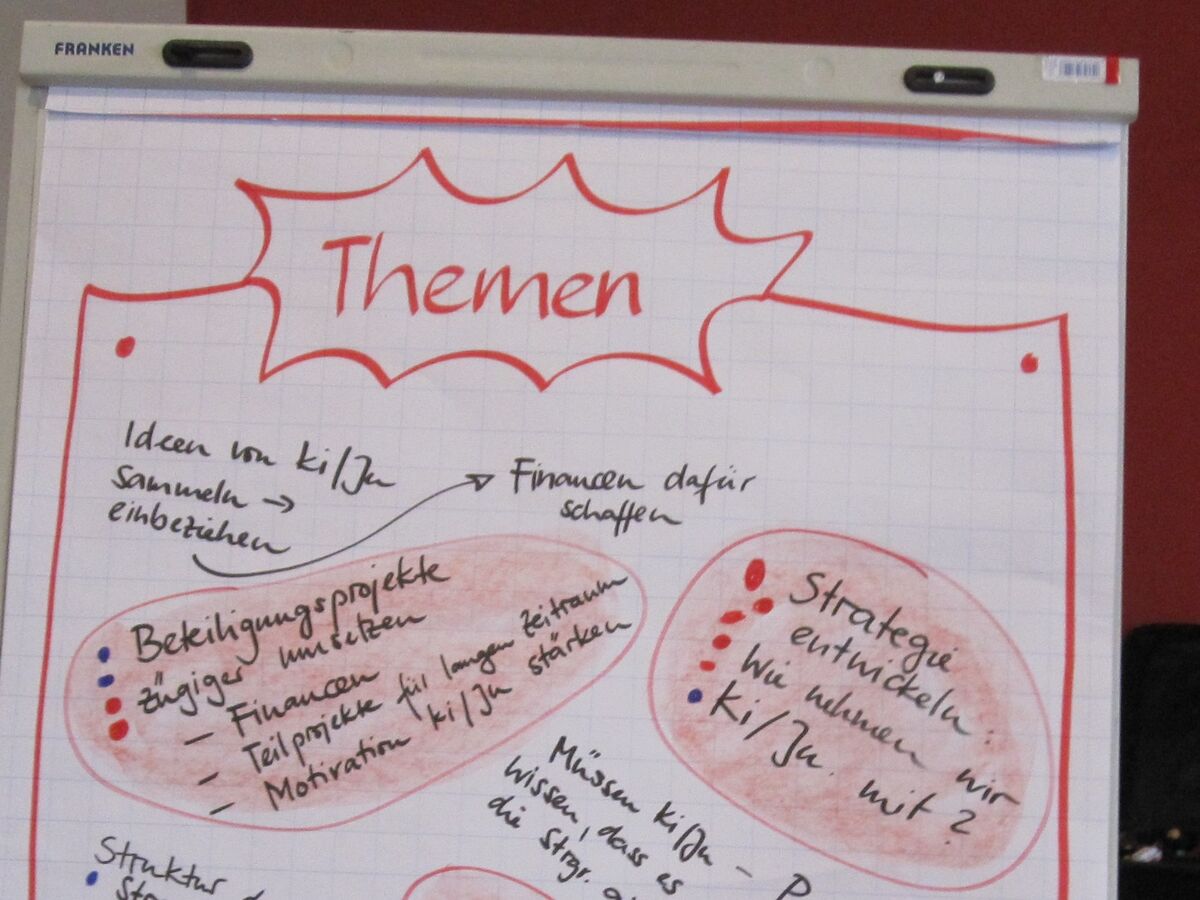 FRANKEN
Themen
Ideen von Ki/Ju
sammeln →
einbeziehen
Finanzen dafür
schaffen
Beteiligungsprojekte
zügiger umsetzen
– Finanzen
– Teilprojekte für langen Zeitraum
– Motivation Ki/Ju stärken
Strategie
entwickeln:
Wie nehmen wir
Ki/Ju. mit?
Müssen Ki/Ju –
wissen, dass es
die
Struktur